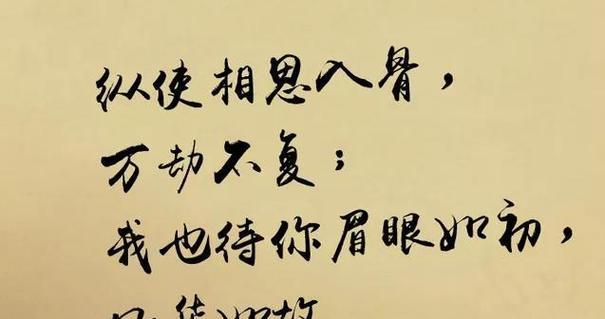 纵使相思入骨，
万劫不复；
我也待你眉眼如初，
如故